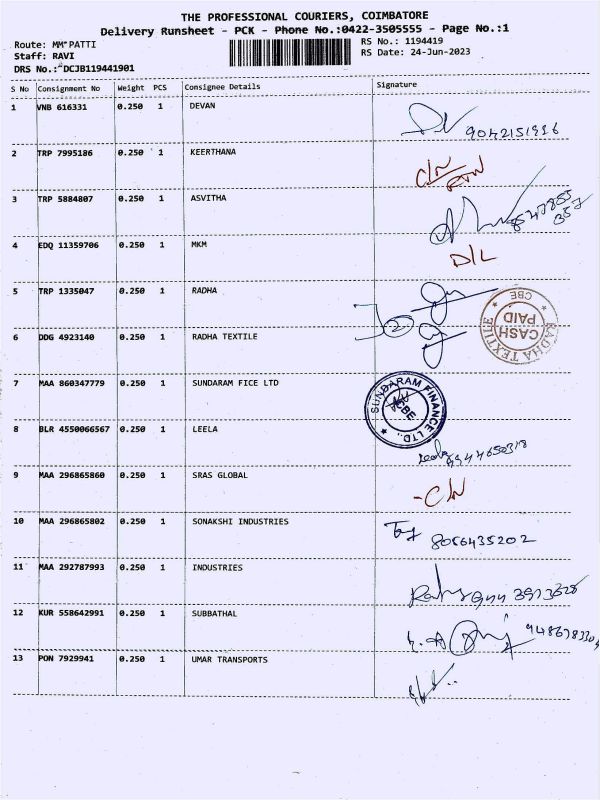 THE PROFESSIONAL COURIERS, COIMBATORE
Delivery Runsheet - PCK - Phone No.:0422-3505555 - Page No.:1
Route: MM PATTI RS No.: 1194419
Staff: RAVI RS Date: 24-Jun-2023
DRS No.: DCJB119441901
S No Consignment No Weight PCS Consignee Details Signature
1 VNB 616331 0.250 1 DEVAN
9042151916
2 TRP 7995186 0.250 1 KEERTHANA
3 TRP 5884807 0.250 1 ASVITHA
4 EDQ 11359706 0.250 1 MKM
D/L
5 TRP 1335047 0.250 1 RADHA
6 DDG 4923140 0.250 1 RADHA TEXTILE
RADHA TEXTILE
CASH PAID
CBE
7 MAA 860347779 0.250 1 SUNDARAM FICE LTD
SUNDARAM FINANCE LTD.,
CBE
8 BLR 4550066567 0.250 1 LEELA
9 MAA 296865860 0.250 1 SRAS GLOBAL
10 MAA 296865802 0.250 1 SONAKSHI INDUSTRIES
8056435202
11 MAA 292787993 0.250 1 INDUSTRIES
12 KUR 558642991 0.250 1 SUBBATHAL
13 PON 7929941 0.250 1 UMAR TRANSPORTS